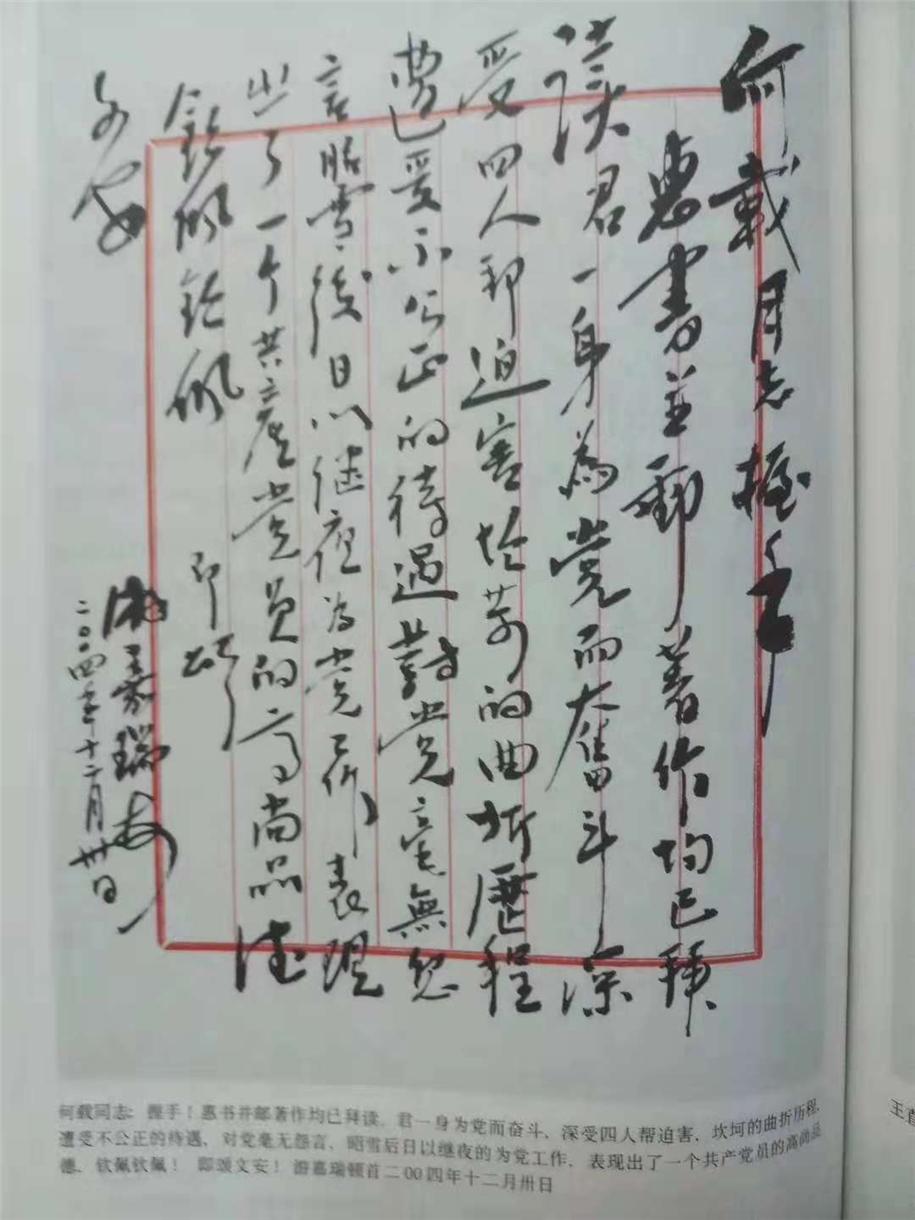 何载同志握手
惠书并邮著作均已拜
读君一身为党而奋斗深
受四人邦迫害坎苛的曲折历程
遭受不公正的待遇对党毫無怨
言昭雪後日以继夜为党工作表现
出了一个共产党员的高尚品德
钦佩钦佩 即颂
文安
游嘉瑞顿首
二〇〇四年十二月卅日
何载同志：握手！惠书并邮著作均已拜读，君一身为党而奋斗，深受四人帮迫害，坎坷的曲折历程，
遭受不公正的待遇，对党毫无怨言，昭雪后日以继夜的为党工作，表现出了一个共产党员的高尚品
德，钦佩钦佩！ 即颂文安！游嘉瑞顿首二00四年十二月卅日